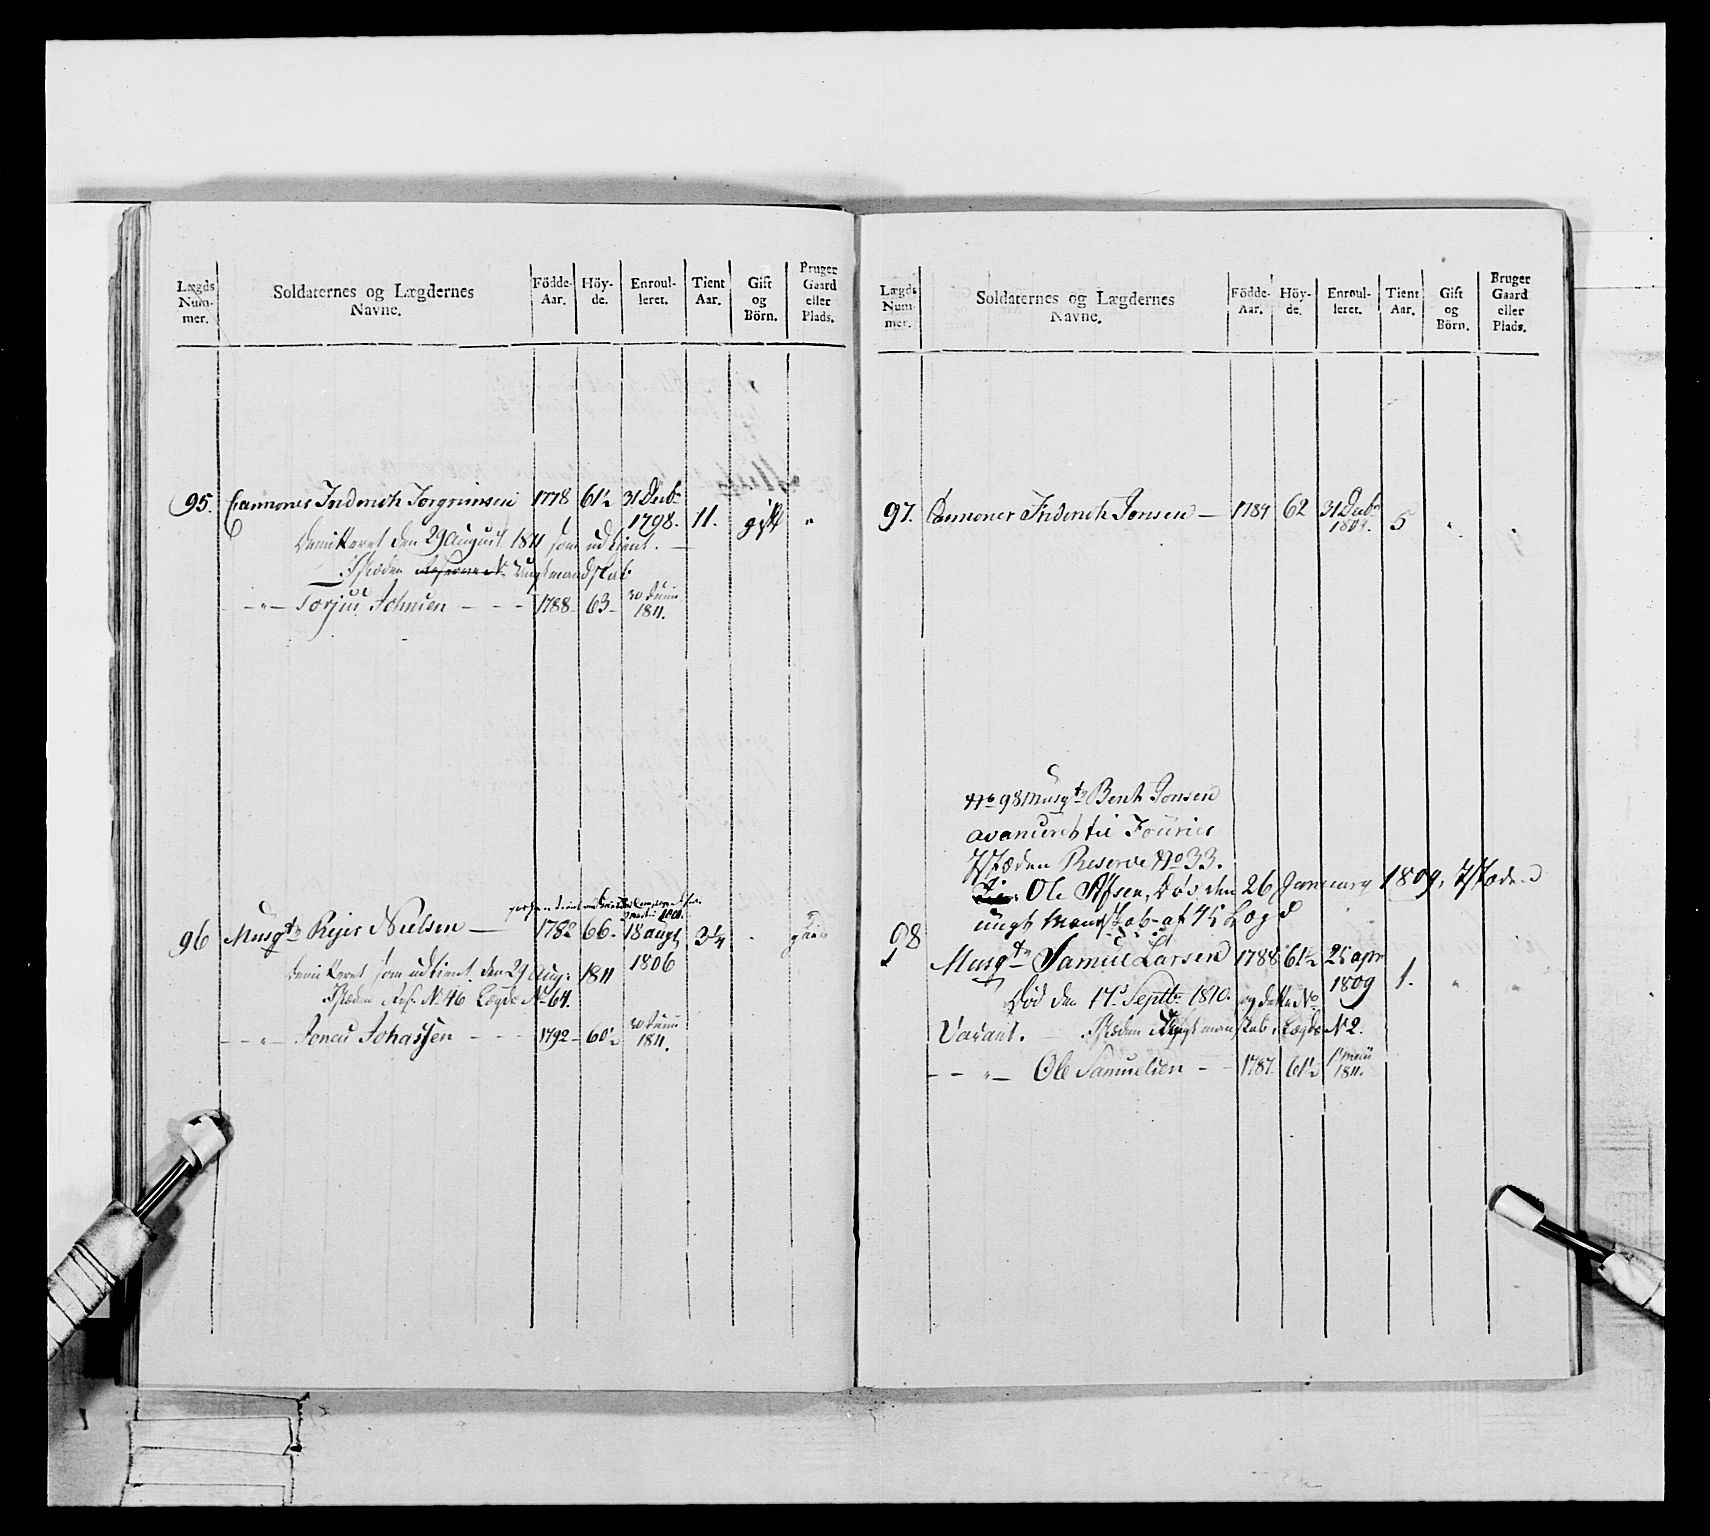 Lægds Num-mer.
Soldaternes og Lægdernes Navne.
Födde-Aar.
Höy-de.
Enroul-leret.
Tient Aar.
Gift og Börn.
Bruger Gaard eller Plads.
95. Cannoner Friderich Torgrimsen 1778 61½ 31 Decbr 1798. 11. gift "
Demitteret den 29 August 1811 som udtient. —
I stæden Ungt mandskab
- - " - Torjus Johnsen - - - 1788 63 - 30 Junii 1811.
96 Musqtr Rejer Nielsen — 1782 66. 18 augt 1806 3¼ .
demitteret som udtient den 29 Aug: 1811
I stæden Res. No 46 Lægde No 64.
- - " - Jonas Johassen - - - 1792 - 60½ 30 Junii 1811.
Lægds Num-mer.
Soldaternes og Lægdernes Navne.
Födde-Aar.
Höy-de.
Enroul-leret.
Tient Aar.
Gift og Börn.
Bruger Gaard eller Plads.
97. Cannoner Friderich Jonsen — 1784 62 31 Decbr 1804. 5 "
No 98 Musqtr Bent Jonsen
avanceret til Fourier
I stæden Reserve No 33.
Ole Olsen, Död den 26 January 1809, I stæden
ungt Mandskab af 45 Lægd
98 Musqtr Samuel Larsen 1788 61½ 25 apr 1809 1. " "
Död den 17de Septbr 1810. og dette No
Vacant. — I stæden Ungt manskab i Lægde No 2.
- - " - Ole Samuelsen - - 1787 61½ 1 Maii 1811.